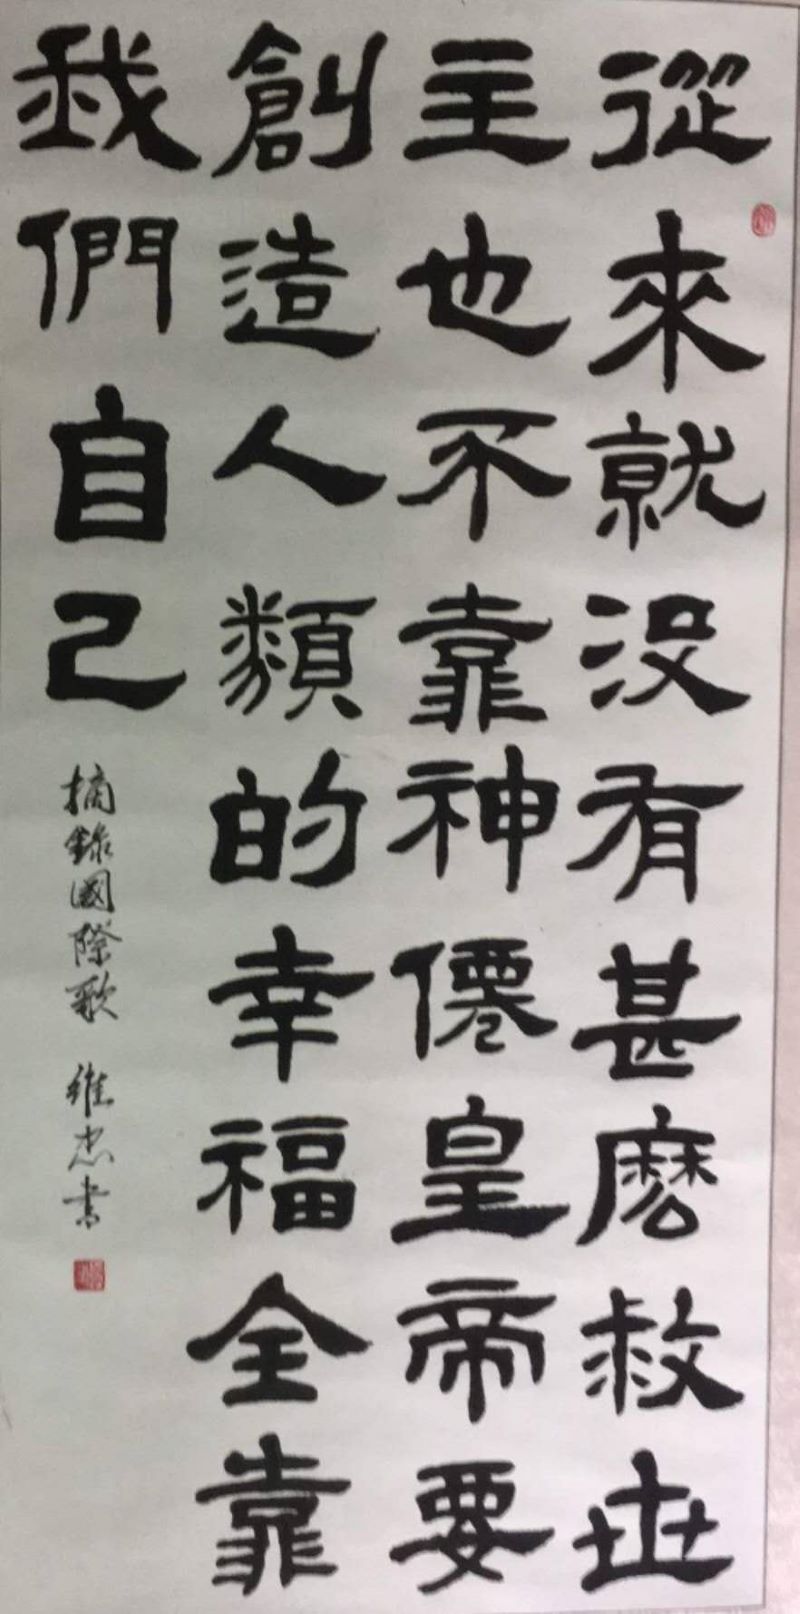 從來就没有甚麽救世
主也不靠神僊皇帝要
創造人類的幸福全靠
我們自己
摘錄國際歌 維忠書